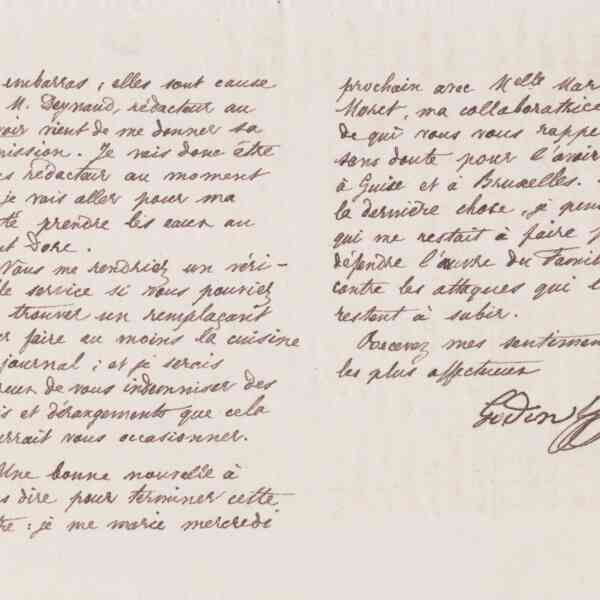 embarras ; elles sont cause
M. Deynaud, rédacteur au
voir vient de me donner sa
mission. Je vais donc être
s rédacteur au moment
je vais aller pour ma
té prendre les eaux au
t Dore.
Vous me rendriez un véri-
le service si vous pouviez
trouver un remplaçant
r faire au moins la cuisine
journal ; et je serais
reux de vous indemniser des
is et dérangements que cela
urrait vous occasionner.
Une bonne nouvelle à
s dire pour terminer cette
tre : je me marie mercredi
prochain avec Melle Mar
Moret, ma collaboratrice
de qui vous vous rappe
sans doute pour l'avoir
à Guise et à Bruxelles.
la dernière chose, je pen
qui me restait à faire p
défendre l'œuvre du Famil
contre les attaques qui l
restent à subir.
Recevez mes sentiment
les plus affectueux
Godin